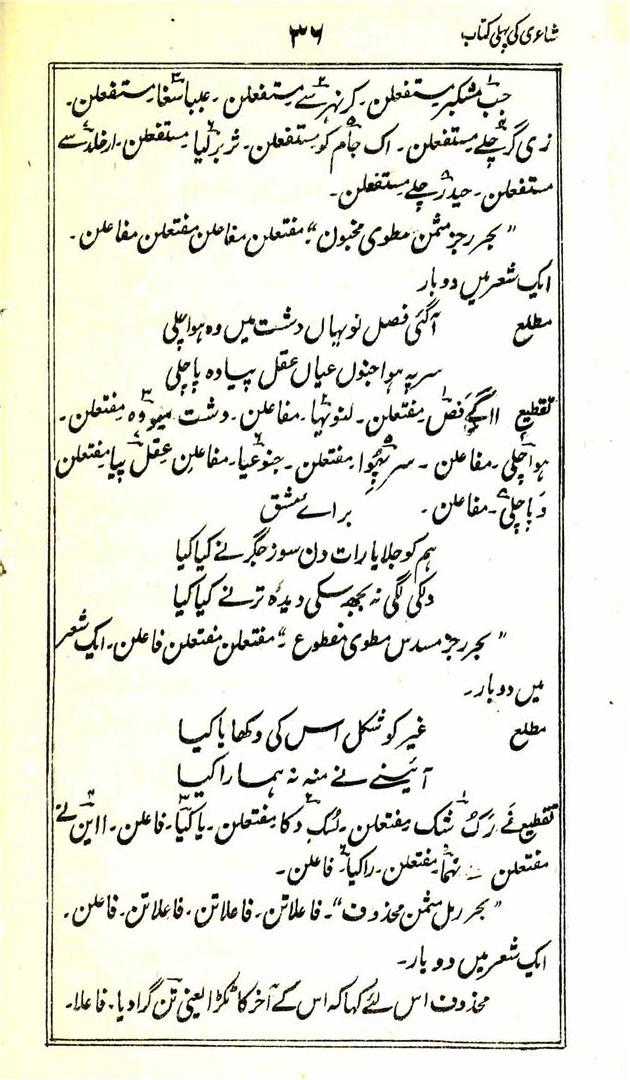 شاعری کی پہلی کتاب
۳۶
جب مشکبر مستفعلن۔ کر نہر سے مستفعلن۔ عباسغا مستفعلن۔
زی گر چلے مستفعلن۔ اک جام کو مستفعلن۔ تر بر گیا مستفعلن۔ ار خلد سے
مستفعلن۔ حیدر چلے مستفعلن۔
”بحر رجز مثمن مطوی مخبون“ مفتعلن مفاعلن مفتعلن مفاعلن۔
ایک شعر میں دو بار
مطلع آگئی فصل نو بہاں دشت میں وہ ہوا چلی
سر پہ ہوا جنوں عیاں عقل پیادہ پا چلی
تقطیع ااگے فصل مفتعلن۔ لنوبہا۔ مفاعلن۔ دشت میو وہ مفتعلن۔
ہوا چلی۔ مفاعلن۔ سر پہوا مفتعلن۔ جنوعیا۔ مفاعلن عقل پیا مفتعلن
دپا چلی۔ مفاعلن۔ برائے مشق
ہم کو جلایا رات دن سوز جگر نے کیا کیا
دل کی لگی نہ بجھ سکی دیدۂ تر نے کیا کیا
”بحر رجز مسدس مطوی مقطوع۔“ مفتعلن مفتعلن فاعلن۔ ایک شعر
میں دو بار۔
مطلع غیر کو شکل اس کی دکھایا کیا
آئینے نے منہ نہ ہمارا کیا
تقطیع غے رک شک مفتعلن۔ لسک دکا مفتعلن۔ یا کیا۔ فاعلن۔ ااین نے
مفتعلن نہما مفتعلن۔ را کیا۔ فاعلن۔
”بحر رمل مثمن محذوف“۔ فاعلاتن۔ فاعلاتن۔ فاعلاتن۔ فاعلن۔
ایک شعر میں دو بار۔
محذوف اس لئے کہا کہ اس کے آخر کا ٹکڑا یعنی تن گرا دیا۔ فاعلا۔